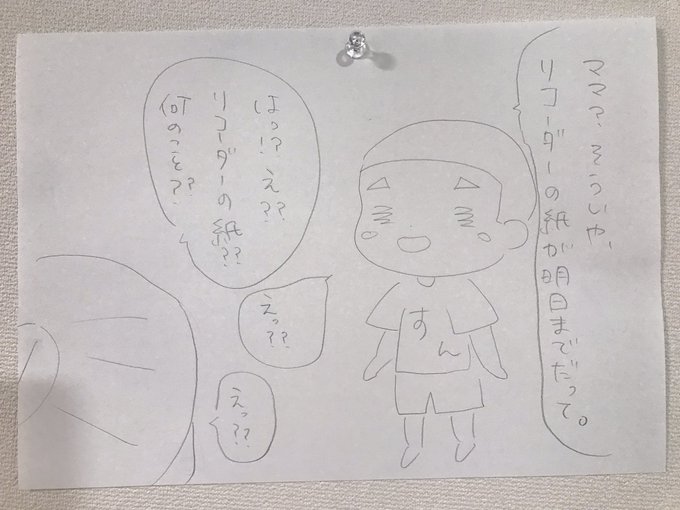 ママ?、そういや、
リコーダーの紙が明日までだって。
はっ!?え??
リコーダーの紙??
何のこと??
えっ??
えっ??
すん